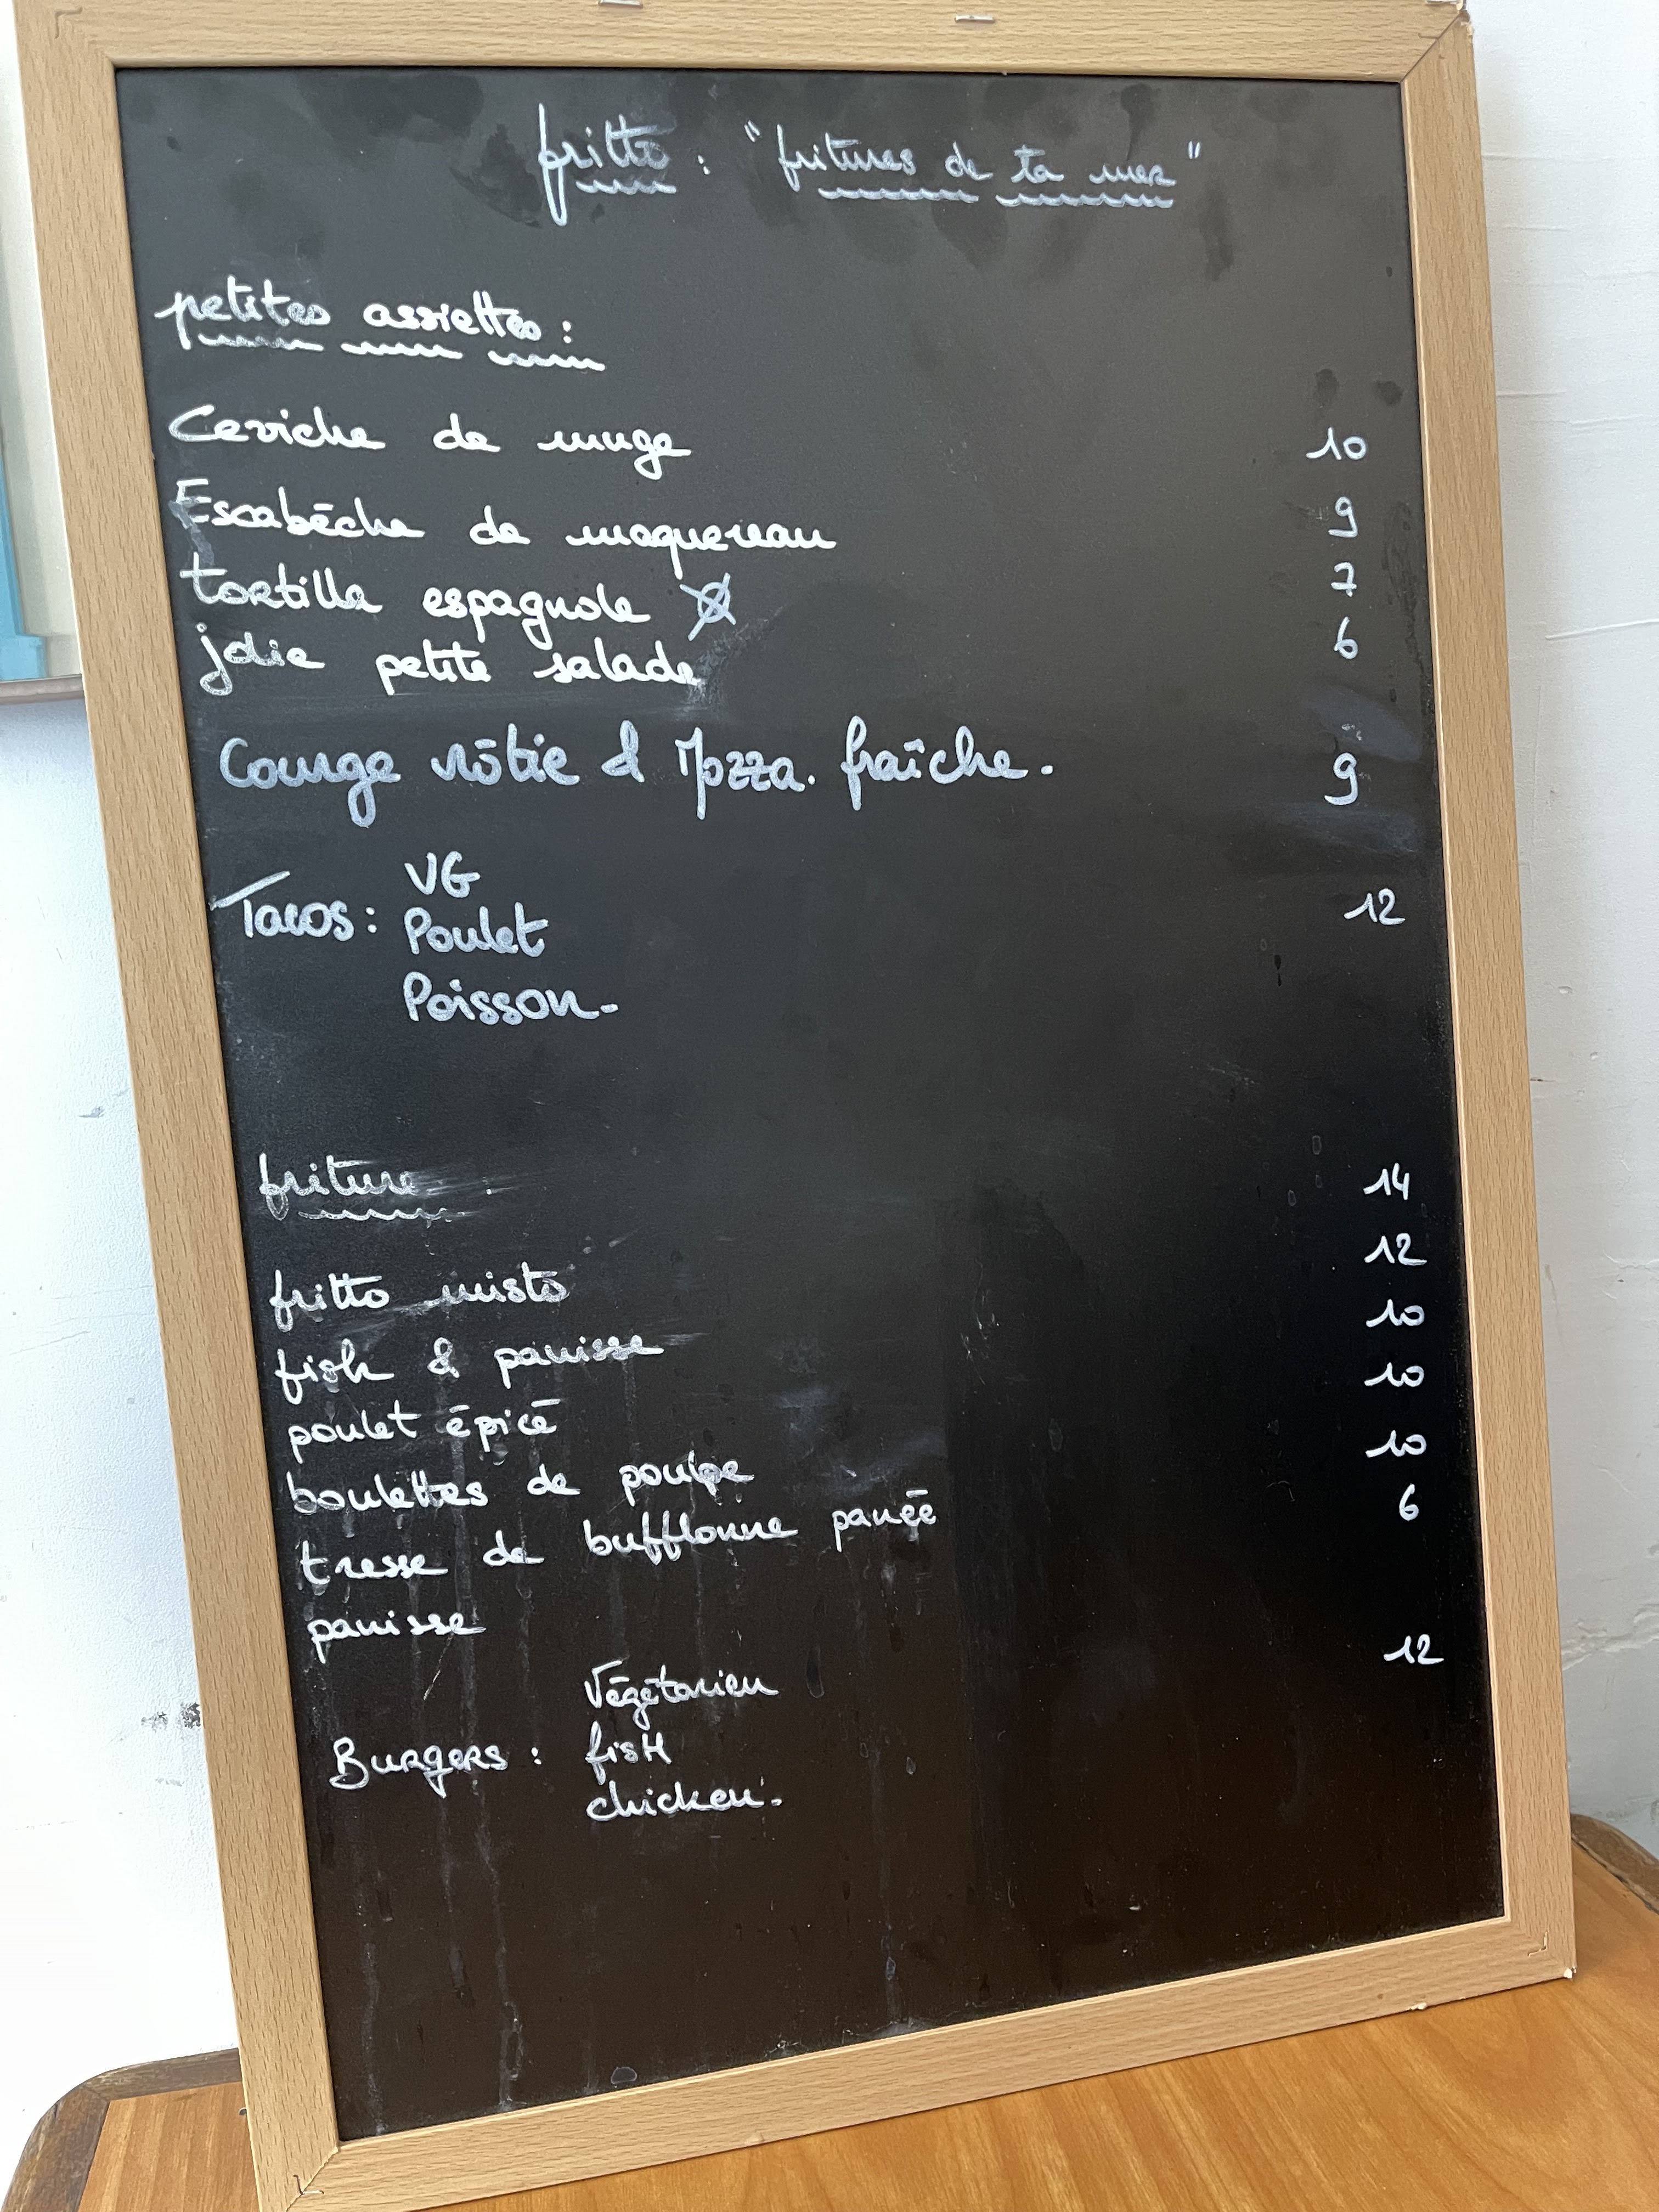 fritto : "fritures de ta mer"
petites assiettes :
Ceviche de muge 10
Escabèche de maquereau 9
tortilla espagnole 7
jolie petite salade 6
Courge rôtie & Mozza. fraîche. 9
Tacos : VG 12
Poulet
Poisson.
friture 14
12
fritto misto 10
fish & panisse 10
poulet épicé 10
boulettes de poulpe 6
tresse de bufflonne panée
panisse
12
Végétarien
Burgers : fish
chicken.